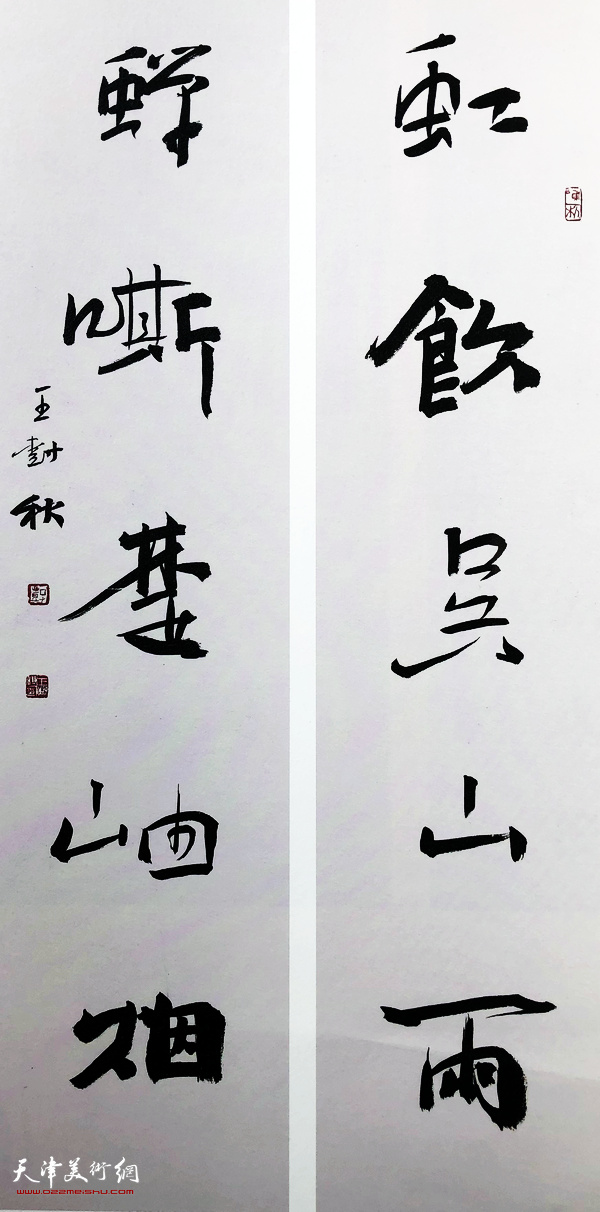 虹飲吳山雨
蟬嘶楚岫烟
王對秋
天津美術網
www.022meishu.com